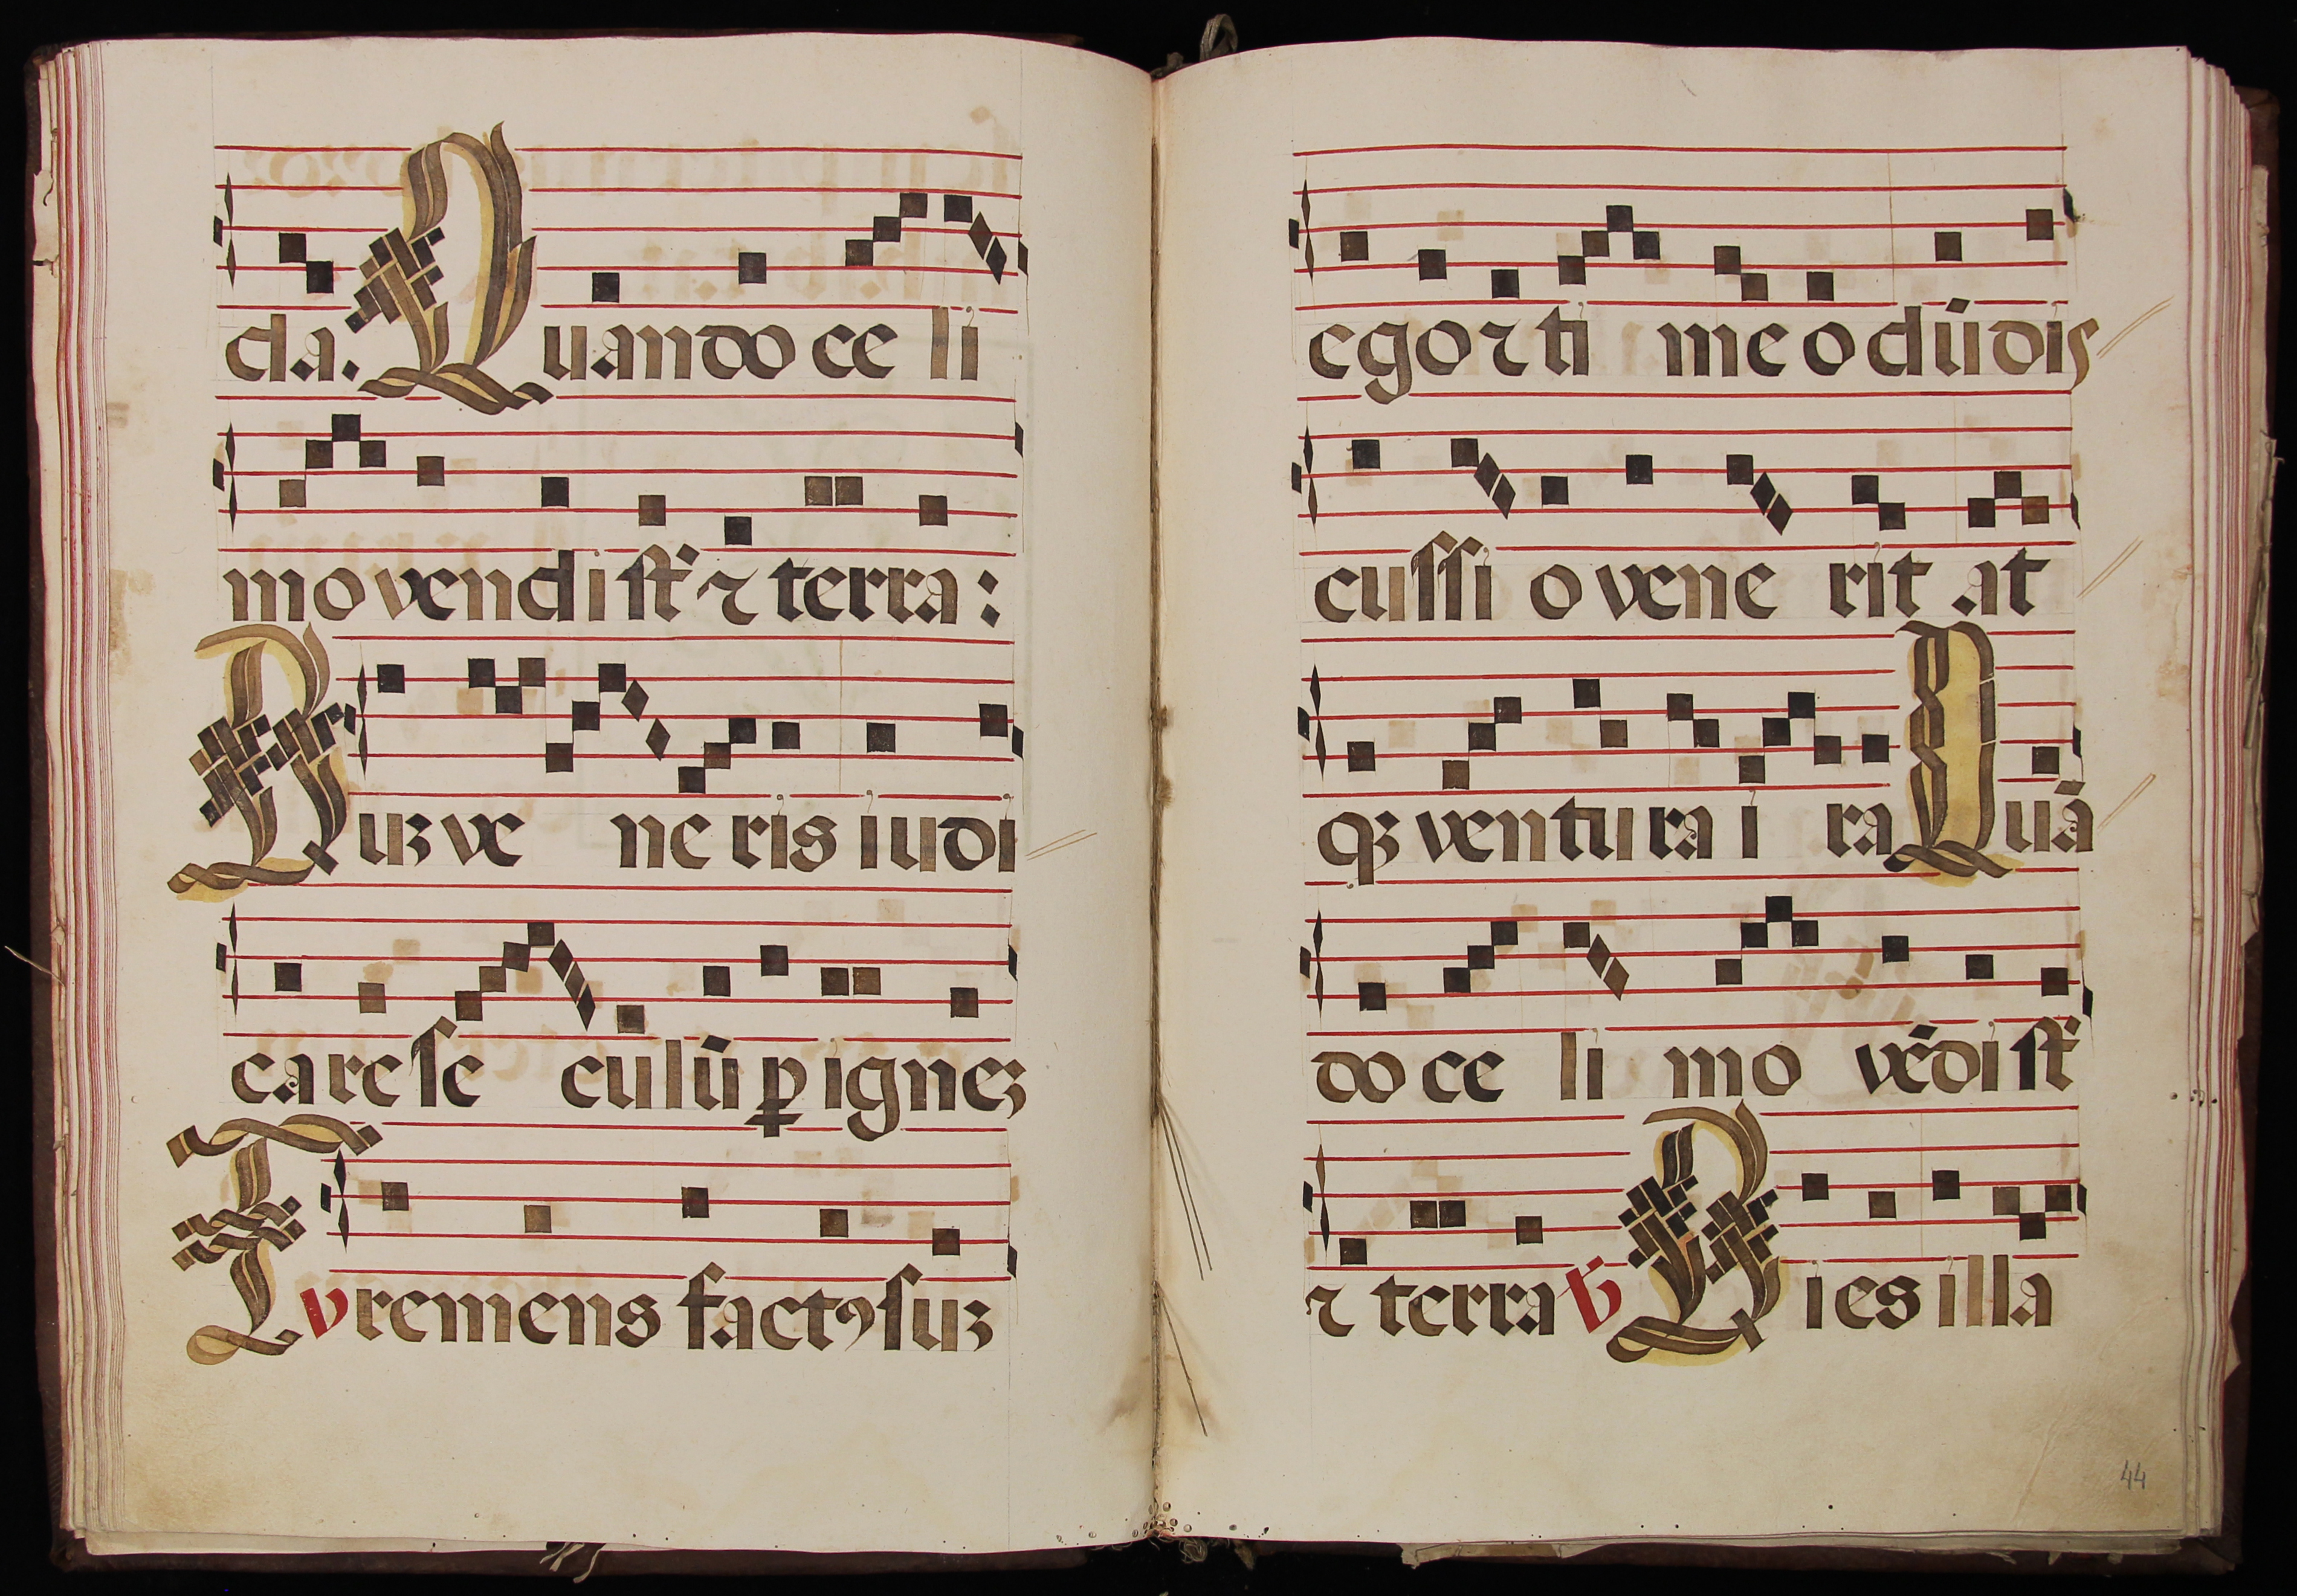 da. Quando celi
movendi st̃ ⁊ terra:
Duꝫ veneris iudi
care seculū ꝑ igneꝫ
v Tremens factꝯ suꝫ
ego ⁊ timeo dū dis
cussio venerit at
qꝫ ventura ira Quā
do celi movēdi st̃
⁊ terra ℣ Dies illa
44